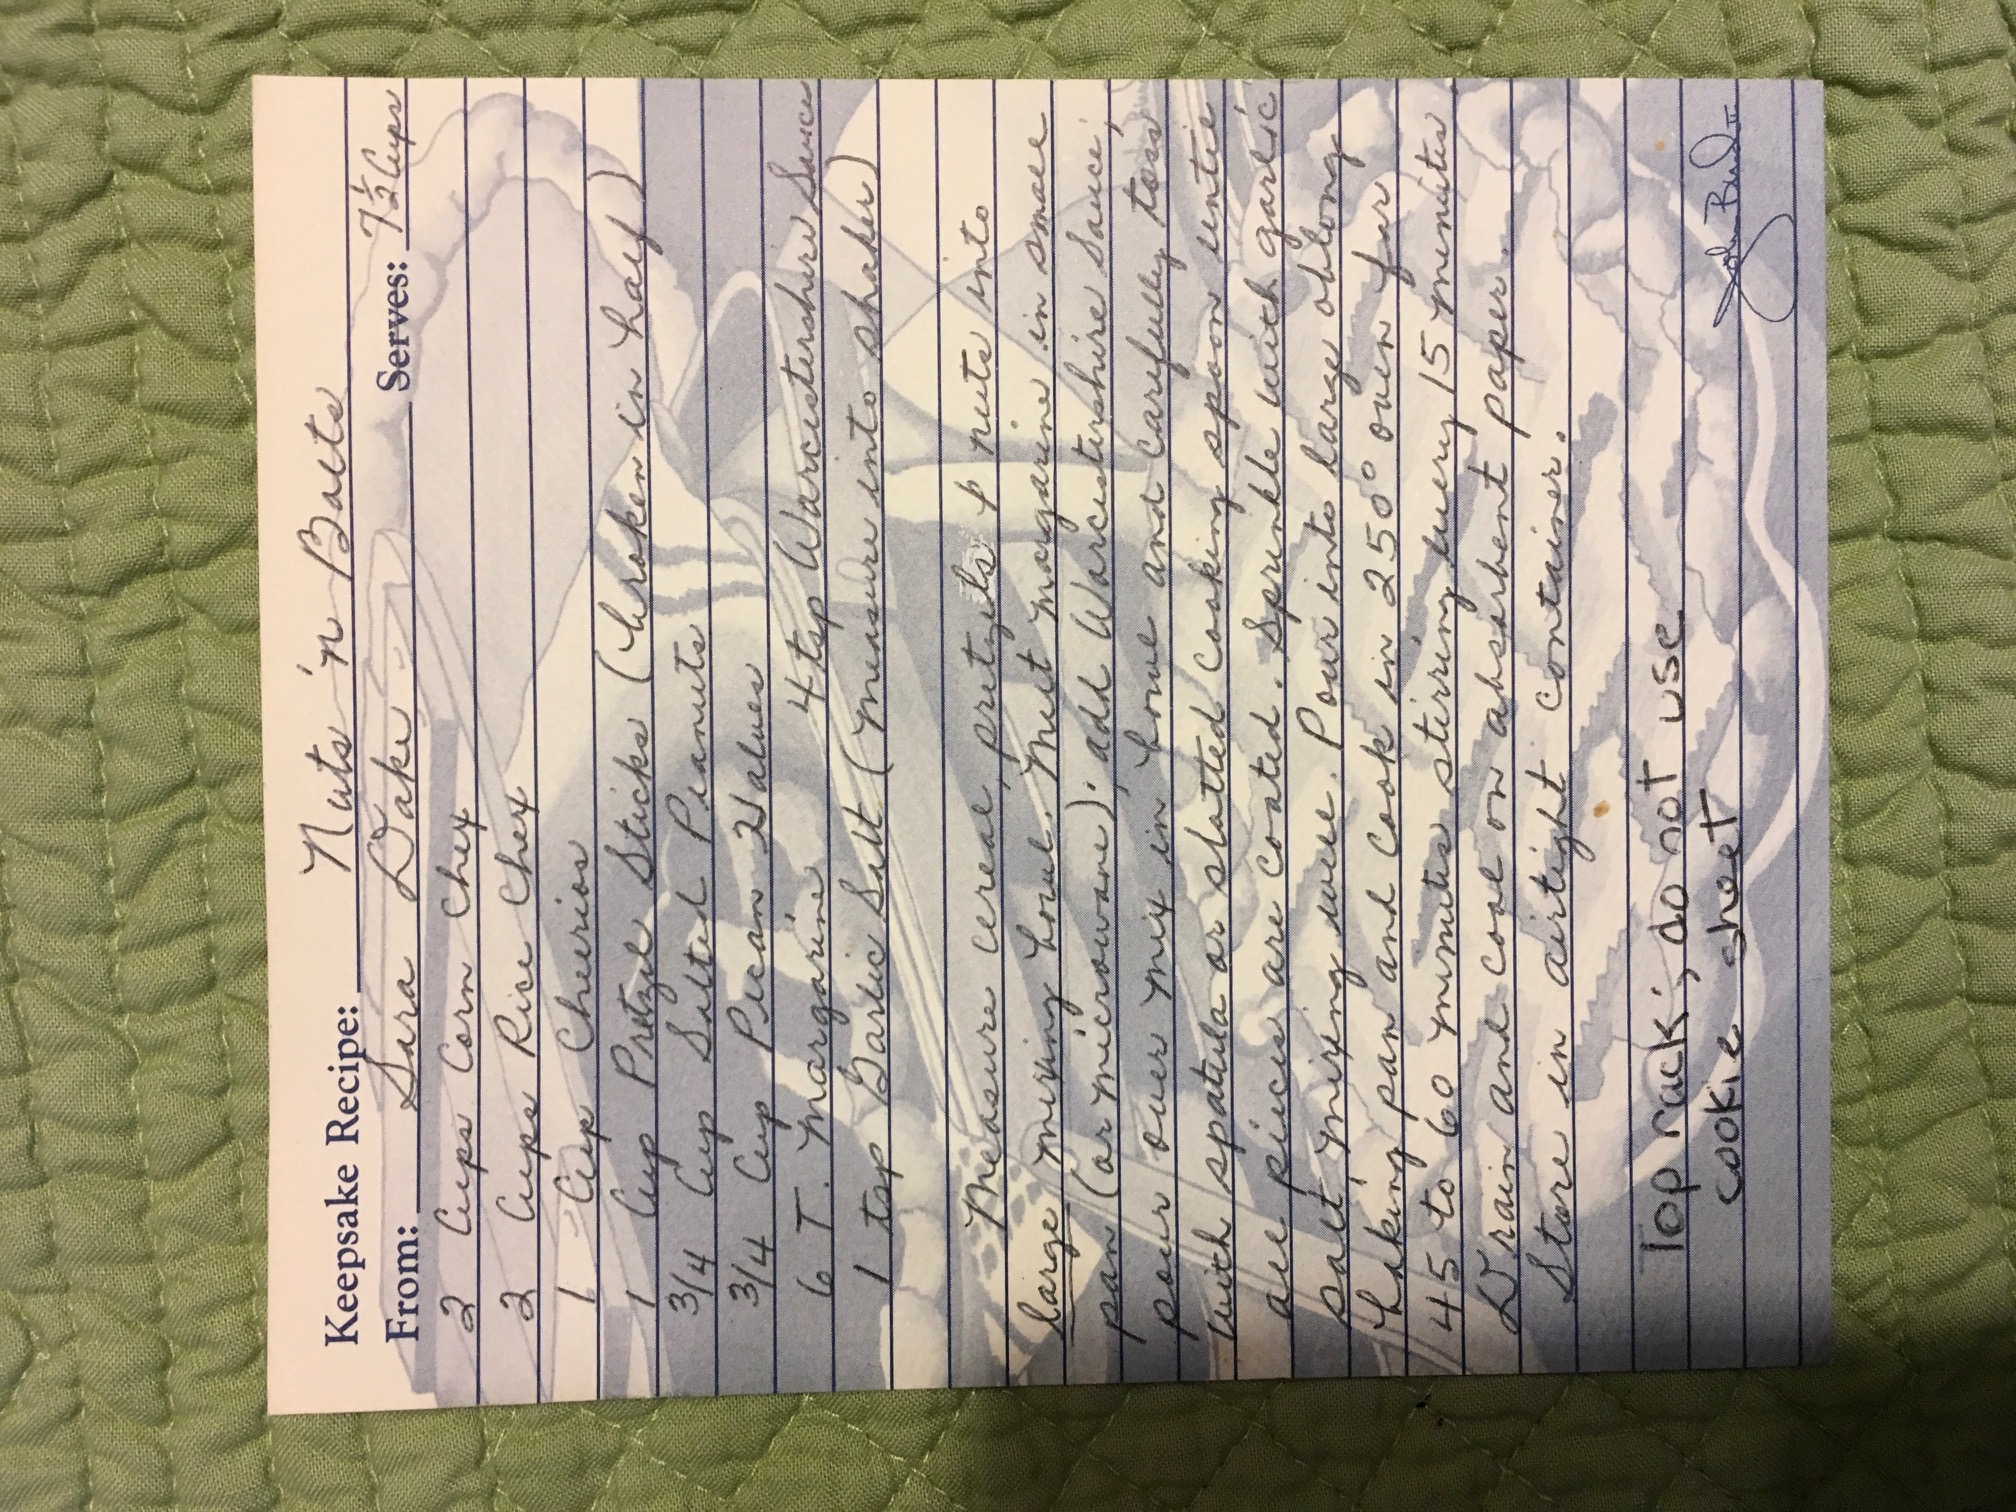 Keepsake Recipe: Nuts 'n Bolts
From: Sara Dake Serves: 7 1/2 Cups
2 Cups Corn Chex
2 Cups Rice Chex
1 Cup Cheerios
1 Cup Pretzel Sticks (broken in half)
3/4 Cup Salted Peanuts
3/4 Cup Pecan Halves
6 T. Margarine 4 tsp Worcestershire Sauce
1 tsp Garlic Salt (measure into shaker)
Measure cereal, pretzels & nuts into
large mixing bowl. Melt margarine in small
pan (or microwave); add Worcestershire Sauce;
pour over mix in bowl and carefully toss
with spatula or slotted cooking spoon until
all pieces are coated. Sprinkle with garlic
salt, mixing well. Pour into large oblong
baking pan and cook in 250° oven for
45 to 60 minutes stirring every 15 minutes.
Drain and cool on absorbent paper.
Store in airtight container.
Top rack; do not use
cookie sheet
John